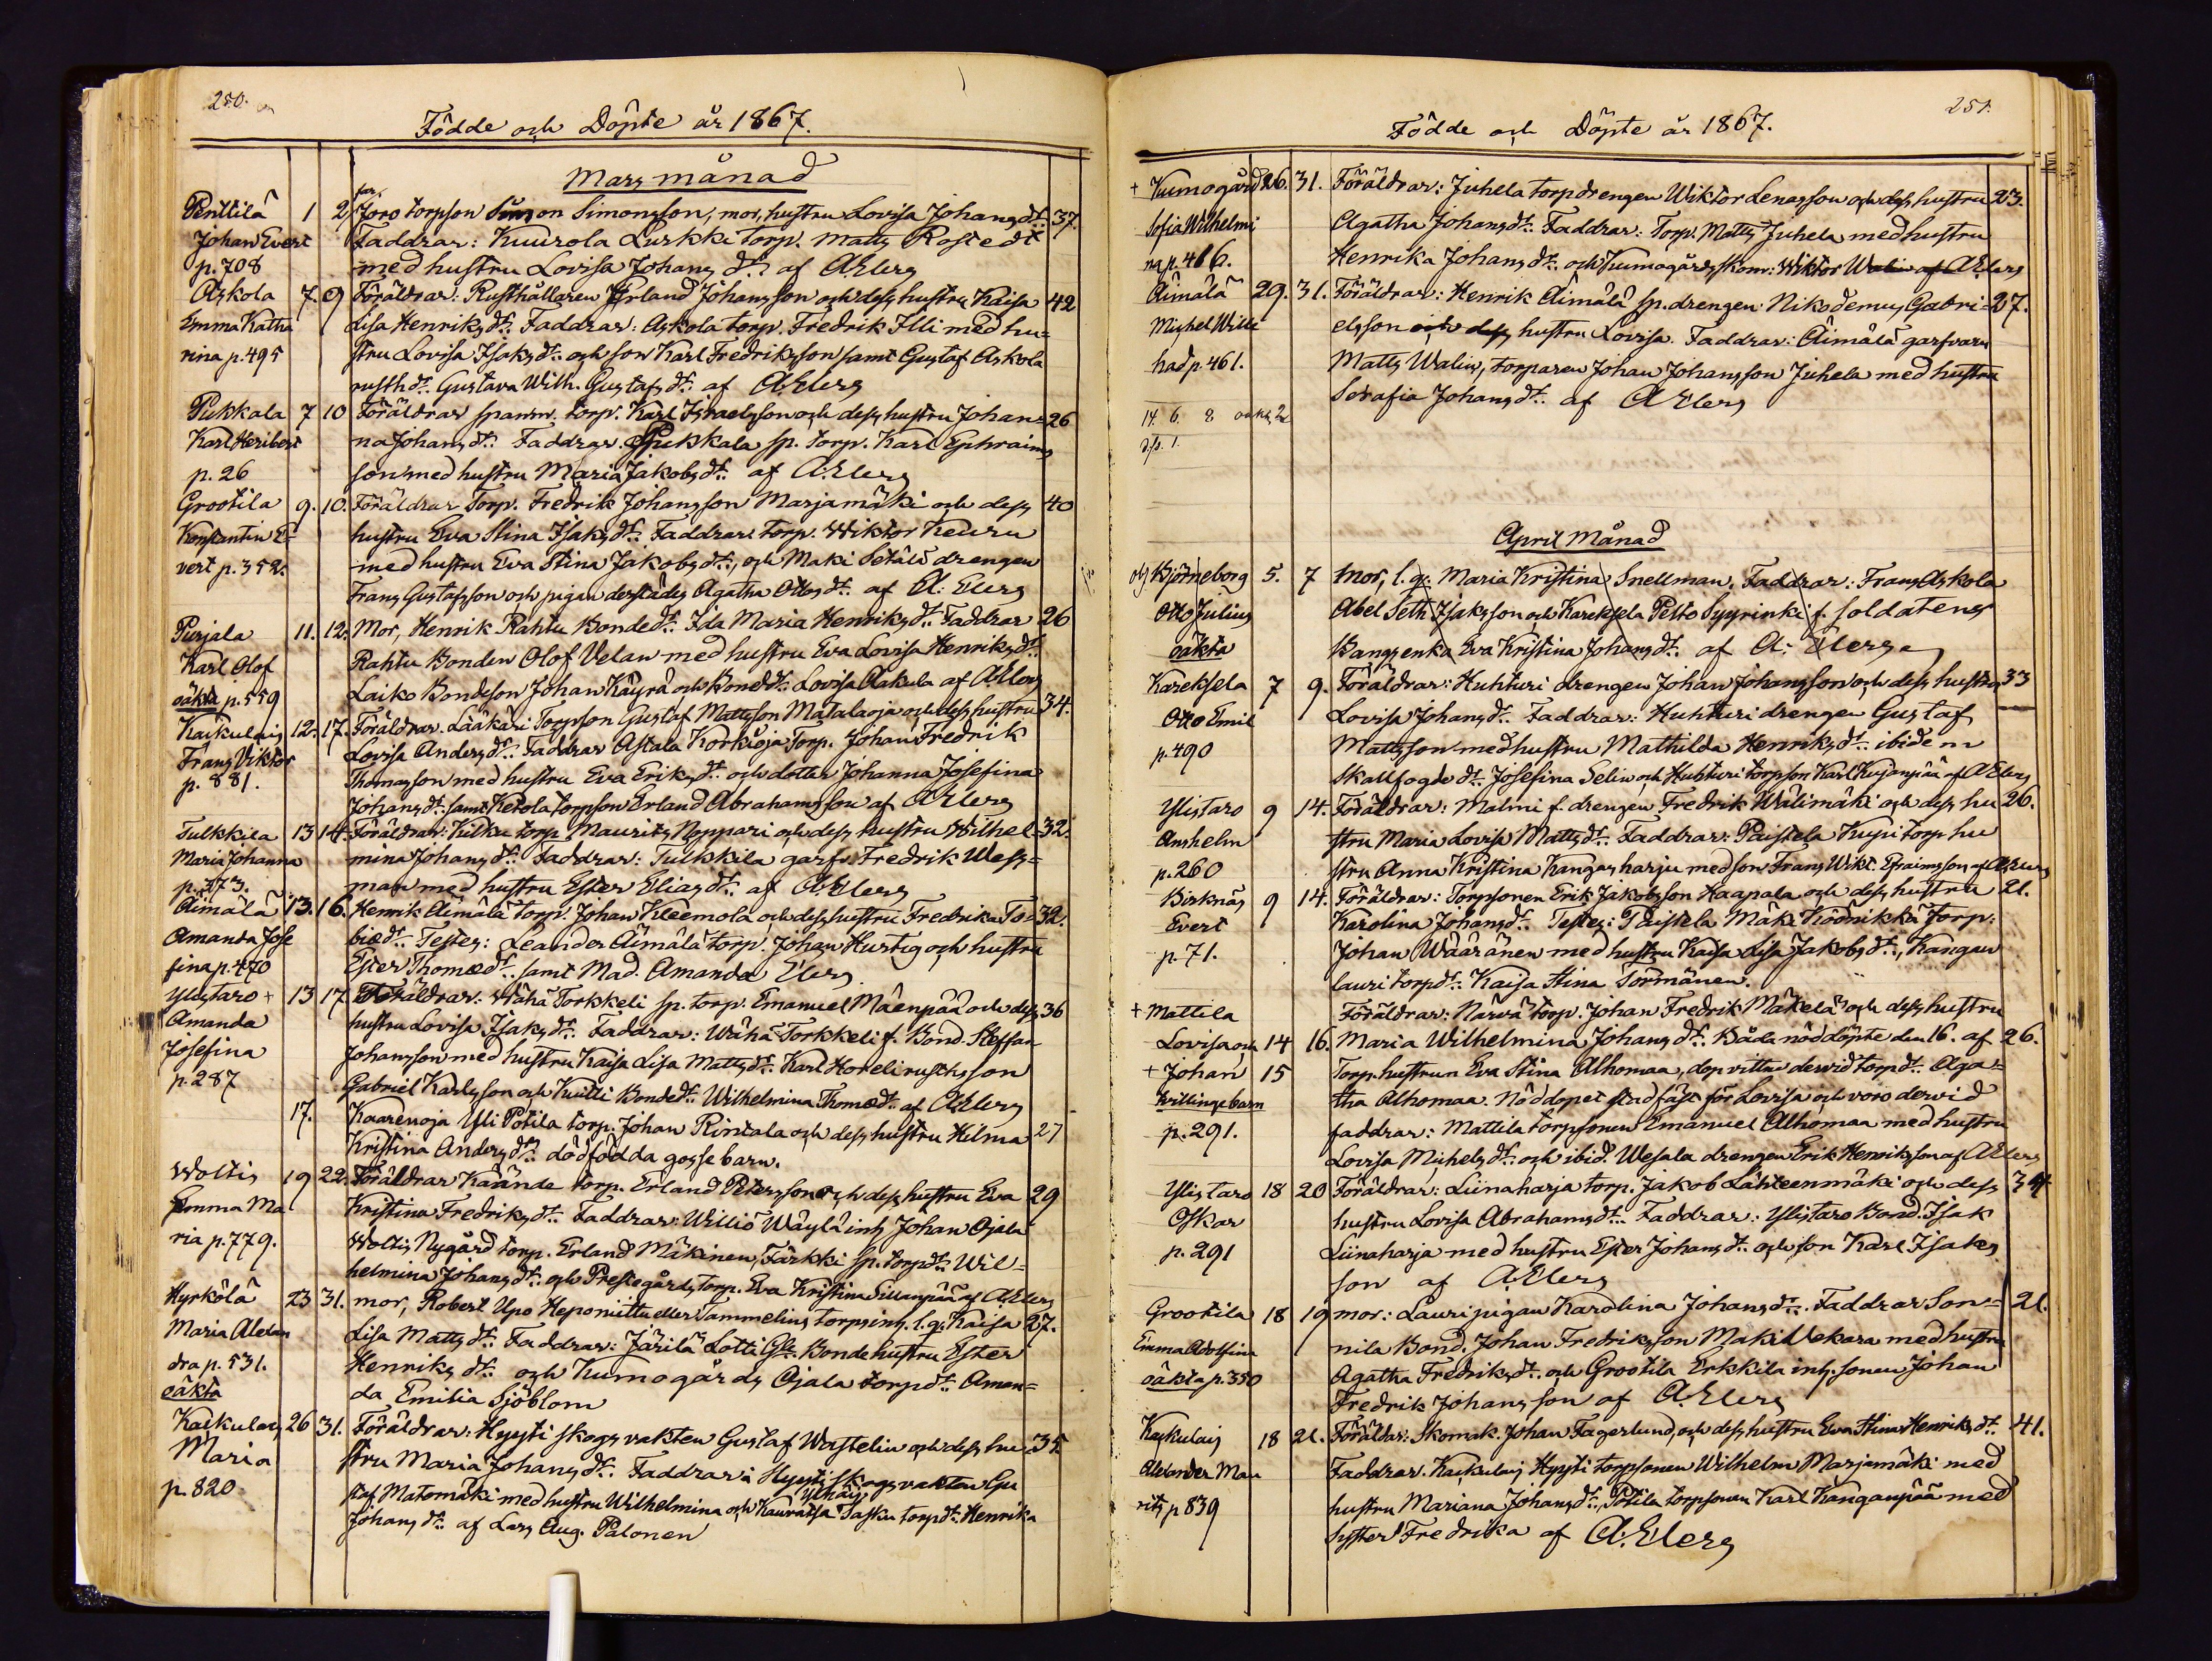 250.
Födde och Döpte år 1867.
Mars månad
Penttilä 1 2 far, Joro torpson Simon Simonsson; mor, hustru Lovisa Johans dr. 37.
Johan Evert Faddrar: Kuurola Lurkki torp. Matts Rostedt
p. 708 med hustru Lovisa Johans dr. af A Elers
Askola 7. 9 Föräldrar: Rusthållaren Erland Johansson och dess hustru Kaisa 42
Emma Katha Lisa Henriks dr. Faddrar: Askola torp. Fredrik Illi med hu=
rina p. 495 stru Lovisa Isaks dr. och son Karl Fredriksson samt Gustaf Askola
rusth dr. Gustava Wilh. Gustafs dr. af A. Elers
Pukkala 7 10 Föräldrar spanm. torp. Karl Israelsson och dess hustru Johan= 26
Karl Heribert na Johans dr. Faddrar. Pukkala sp. torp. Karl Ephraims
p. 26 son med hustru Maria Jakobs dr. af A. Elers
Grootila 9. 10. Föräldrar Torp. Fredrik Johansson Marjamäki och dess 40
Konstantin E= hustru Eva Stina Isaks dr. Faddrar torp. Wiktor Keuru
vert p. 352. med hustru Eva Stina Jakobs dr., och Maki Setälä drengen
Frans Gustafsson och pigan derstädes Agatha Ottos dr. af A. Elers
Purjala 11. 12. Mor, Henrik Rahtu Bonde dr. Ida Maria Henriks dr. Faddrar 26
Karl Olof Rahtu Bonden Olof Velan med hustru Eva Lovisa Henriks dr.
oäkta p. 559 Laiko Bondeson Johan Käyrä och Bonde dr. Lovisa Aakula af A Elers
Kaskulais 12. 17. Föräldrar. Lääkäri Torpson Gustaf Mattsson Matalaoja och dess hustru 34.
Frans Viktor Lovisa Anders dr. Faddrar Astala Korkioja Torp. Johan Fredrik
p. 881. Thomasson med hustru Eva Eriks dr. och dotter Johanna Josefina
Johans dr. samt Ketola torpson Erland Abrahamsson af A Elers
Tulkkila 13 14. Föräldrar: Kilku torp. Maurits Noppari och dess hustru Wilhel= 32.
Maria Johanna mina Johans dr. Faddrar: Tulkkila garfv. Fredrik Wess=
p. 173. man med hustru Ester Elias dr. af A. Elers
Äimälä 13. 16. Henrik Äimälä torp. Johan Kleemola och dess hustru Fredrika To= 32.
Amanda Jose biæ dr. Testes: Leander Äimälä torp. Johan Hurtig och hustru
fina p. 470 Ester Thomæ dr. samt Mad. Amanda Elers
Ylistaro + 13 17. Föräldrar: Wähä Torkkeli sp. torp. Emanuel Mäenpää och dess 36
Amanda hustru Lovisa Isaks dr. Faddrar: Wähä Torkkeli f. Bond. Steffan
Josefina Johansson med hustru Kaisa Lisa Matts dr. Karl Horeli rusthsson
p. 287 Gabriel Karlsson och Knitti Bonde dr. Wilhelmina Thomæ dr. af A Elers
17. Kaarenoja Yli Potila torp. Johan Rintala och dess hustru Helma 27
Kristina Anders dr. dödfödda gossebarn.
Woltis 19 22. Föräldrar Käände torp. Erland Petersson och dess hustru Eva 29
Emma Ma Kristina Fredriks dr. Faddrar: Williö Wäylä inh. Johan Ojala
ria p. 779. Woltis Nygård torp. Erland Mäkinen, Färkki sp. torp dr. Wil=
helmina Johans dr. och Prestegårds torp. Eva Kristina Sillanpää af A Elers
Hyrkölä 23 31. mor, Robert Upo Heponiittu eller Tammelins torps inh. l. q. Kaisa 27.
Maria Alexan Lisa Matts dr. Faddrar: Järilä Lotti Bonde hustru Ester
dra p. 531. Henriks dr. och Kumogårds Ojala torp dr. Aman=
oäkta da Emilia Sjöblom
Kaskulais 26 31. Föräldrar: Hyysti skogsvakten Gustaf Wastelin och dess hu 35
Maria stru Maria Johans dr. Faddrar: Hyysti skogsvakten Gu
p. 820 staf Matomäki med hustru Wilhelmina och Kauvatsa Tasku torp dr. Henrika
Johans dr. af Lars Aug. Palonen
251.
Födde och Döpte år 1867.
+ Kumogård 26. 31. Föräldrar: Juhela torp drengen Wiktor Lenasson och dess hustru 23.
Sofia Wilhelmi Agatha Johans dr. Faddrar: Torp. Matts Juhela med hustru
na p. 466. Henrika Johans dr. och Kumogårds skom: Wiktor Walin af A Elers
Äimälä 29. 31. Föräldrar: Henrik Äimälä sp. drengen Nikodemus Gabri= 27.
Mishel Wille elsson och dess hustru Lovisa. Faddrar: Äimälä garfvaren
had p. 461. Matts Walin, torparen Johan Johansson Juhela med hustru
Serafia Johans dr. af A Elers
14. 6. 8 oäkta 2
df. 1.
April Månad
obj Björneborg 5. 7 Mor, l. q. Maria Kristina Snellman. Faddrar: Frans Askola
Otto Julius Abel Seth Isaksson och Kareksela Pelto Syyrinki f. soldatens
oäkta Bangs enka Eva Kristina Johans dr. af A: Elers
Kareksela 7 9. Föräldrar: Huhturi drengen Johan Johansson och dess hustru 33
Otto Emil Lovisa Johans dr. Faddrar: Huhturi drengen Gustaf
p. 490 Mattsson med hustru Mathilda Henriks dr. ibidem
Skallfogde dr. Josefina Selin och Huhturi torpson Karl Kujanpää af A Elers
Ylistaro 9 14. Föräldrar: Malmi f. drengen Fredrik Wälimäki och dess hu 26.
Anshelm stru Maria Lovisa Matts dr. Faddrar: Paistela Kupi torp hu
p. 260 stru Anna Kristina Kangasharju med son Frans Wikt. Efraimsson af A Elers
Birknäs 9 14. Föräldrar: Torpsonen Erik Jakobsson Haapala och dess hustru 21.
Evert Karolina Johans dr. Testes: Paistela Mäki Köönikkä torp:
p. 71. Johan Wääränen med hustru Kaisa Lisa Jakobs dr., Kangan
lauri torp dr. Kaisa Stina Törmänen.
+ Mattila Föräldrar: Närvä torp. Johan Fredrik Mäkelä och dess hustru
Lovisa och 14 16. Maria Wilhelmina Johans dr. Båda nöddöpte den 16. af 26.
+ Johan 15 Torp. hustrun Eva Stina Alhomaa, dop vittne dervid torp dr. Aga=
tvillingebarn tha Alhomaa. Nöddopet stadfäst för Lovisa och voro dervid
p. 291. faddrar: Mattila torpsonen Emanuel Alhomaa med hustru
Lovisa Michels dr. och ibid. Wesala drengen Erik Henriksson af A Elers
Ylistaro 18 20 Föräldrar: Liinaharja torp. Jakob Lähteenmäki och dess 34
Oskar hustru Lovisa Abrahams dr. Faddrar: Ylistaro Bond. Isak
p. 291 Liinaharja med hustru Ester Johans dr. och son Karl Isaks
son af A. Elers
Grootila 18 19 mor: Lauri pigan Karolina Johans dr. Faddrar Son= 21.
Emma Adolfina nila Bond. Johan Fredriksson Maki Uekara med hustru
oäkta p. 350 Agatha Fredriks dr. och Grootila Erkkila inh. sonen Johan
Fredrik Johansson af A. Elers
Kaskulais 18 21. Föräldrar: Skomak. Johan Fagerlund, och dess hustru Eva Stina Henriks dr. 41.
Alexander Mau Faddrar. Kaskulais Hyysti torpsonen Wilhelm Marjamäki med
rits p 839 hustru Mariana Johans dr., Potila torpsonen Karl Kanganpää med
syster Fredrika af A. Elers